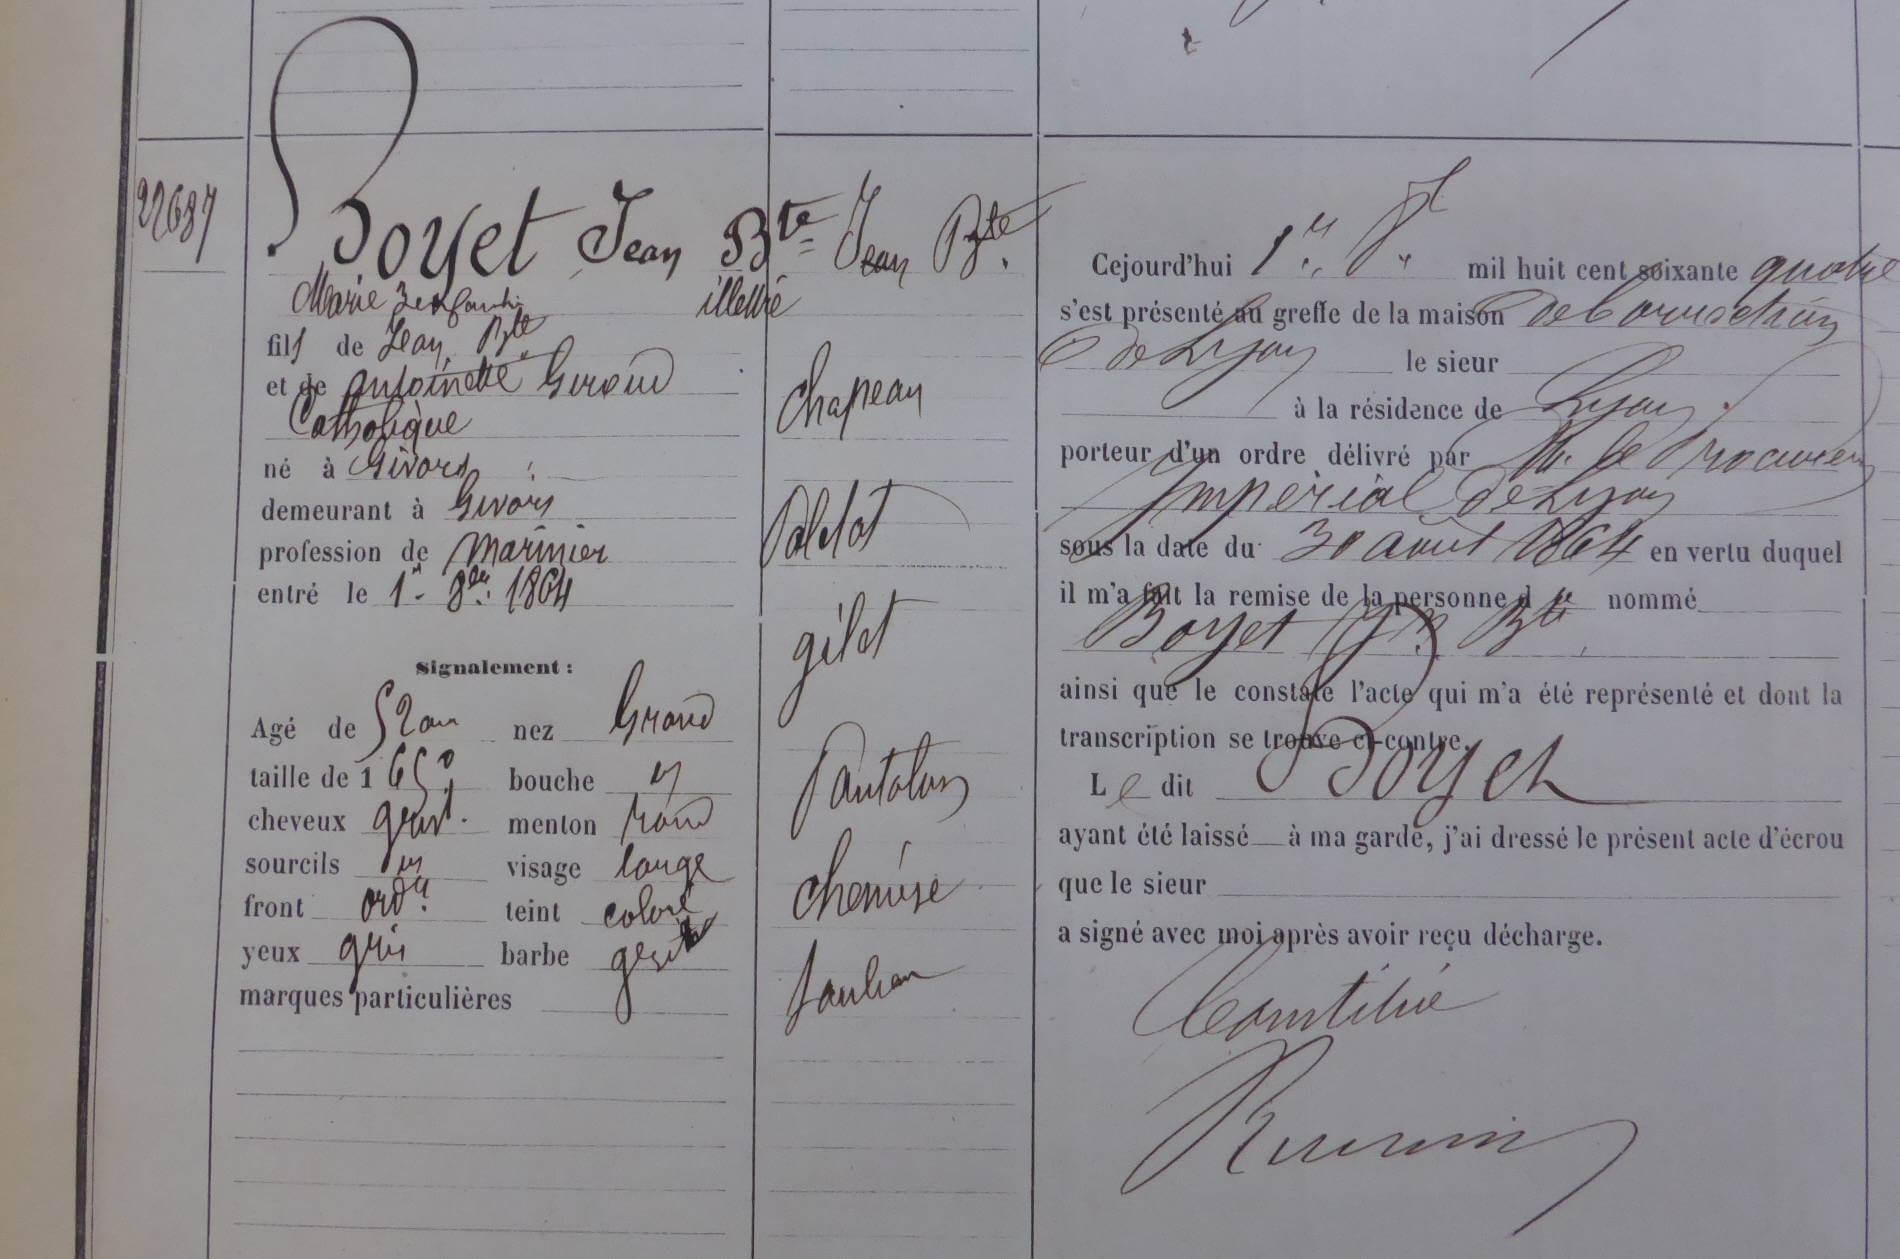 22687
Boyet Jean Bte Jean Bte.
Marié 3 enfants illettré
fils de Jean Bte
et de Antoinette Giroud
Catholique
né à Givors
demeurant à Givors
profession de marinier
entré le 1er 8bre 1864
Signalement :
Agé de 52 ans nez Grand
taille de 1 650 bouche m
cheveux grist. menton rond
sourcils m visage large
front ordre teint coloré
yeux gris barbe grist
marques particulières
Chapeau
Paletot
gilet
Pantalon
Chemise
Soulier
Cejourd'hui 1er 8bre mil huit cent soixante quatre
s'est présenté au greffe de la maison de Correction
de Lyon le sieur
à la résidence de Lyon
porteur d'un ordre délivré par M. le Procureur
Impérial de Lyon
sous la date du 30 août 1864 en vertu duquel
il m'a fait la remise de la personne du nommé
Boyet Jn Bte
ainsi que le constate l'acte qui m'a été représenté et dont la
transcription se trouve ci-contre.
Le dit Boyet
ayant été laissé à ma garde, j'ai dressé le présent acte d'écrou
que le sieur
a signé avec moi après avoir reçu décharge.
Constitué